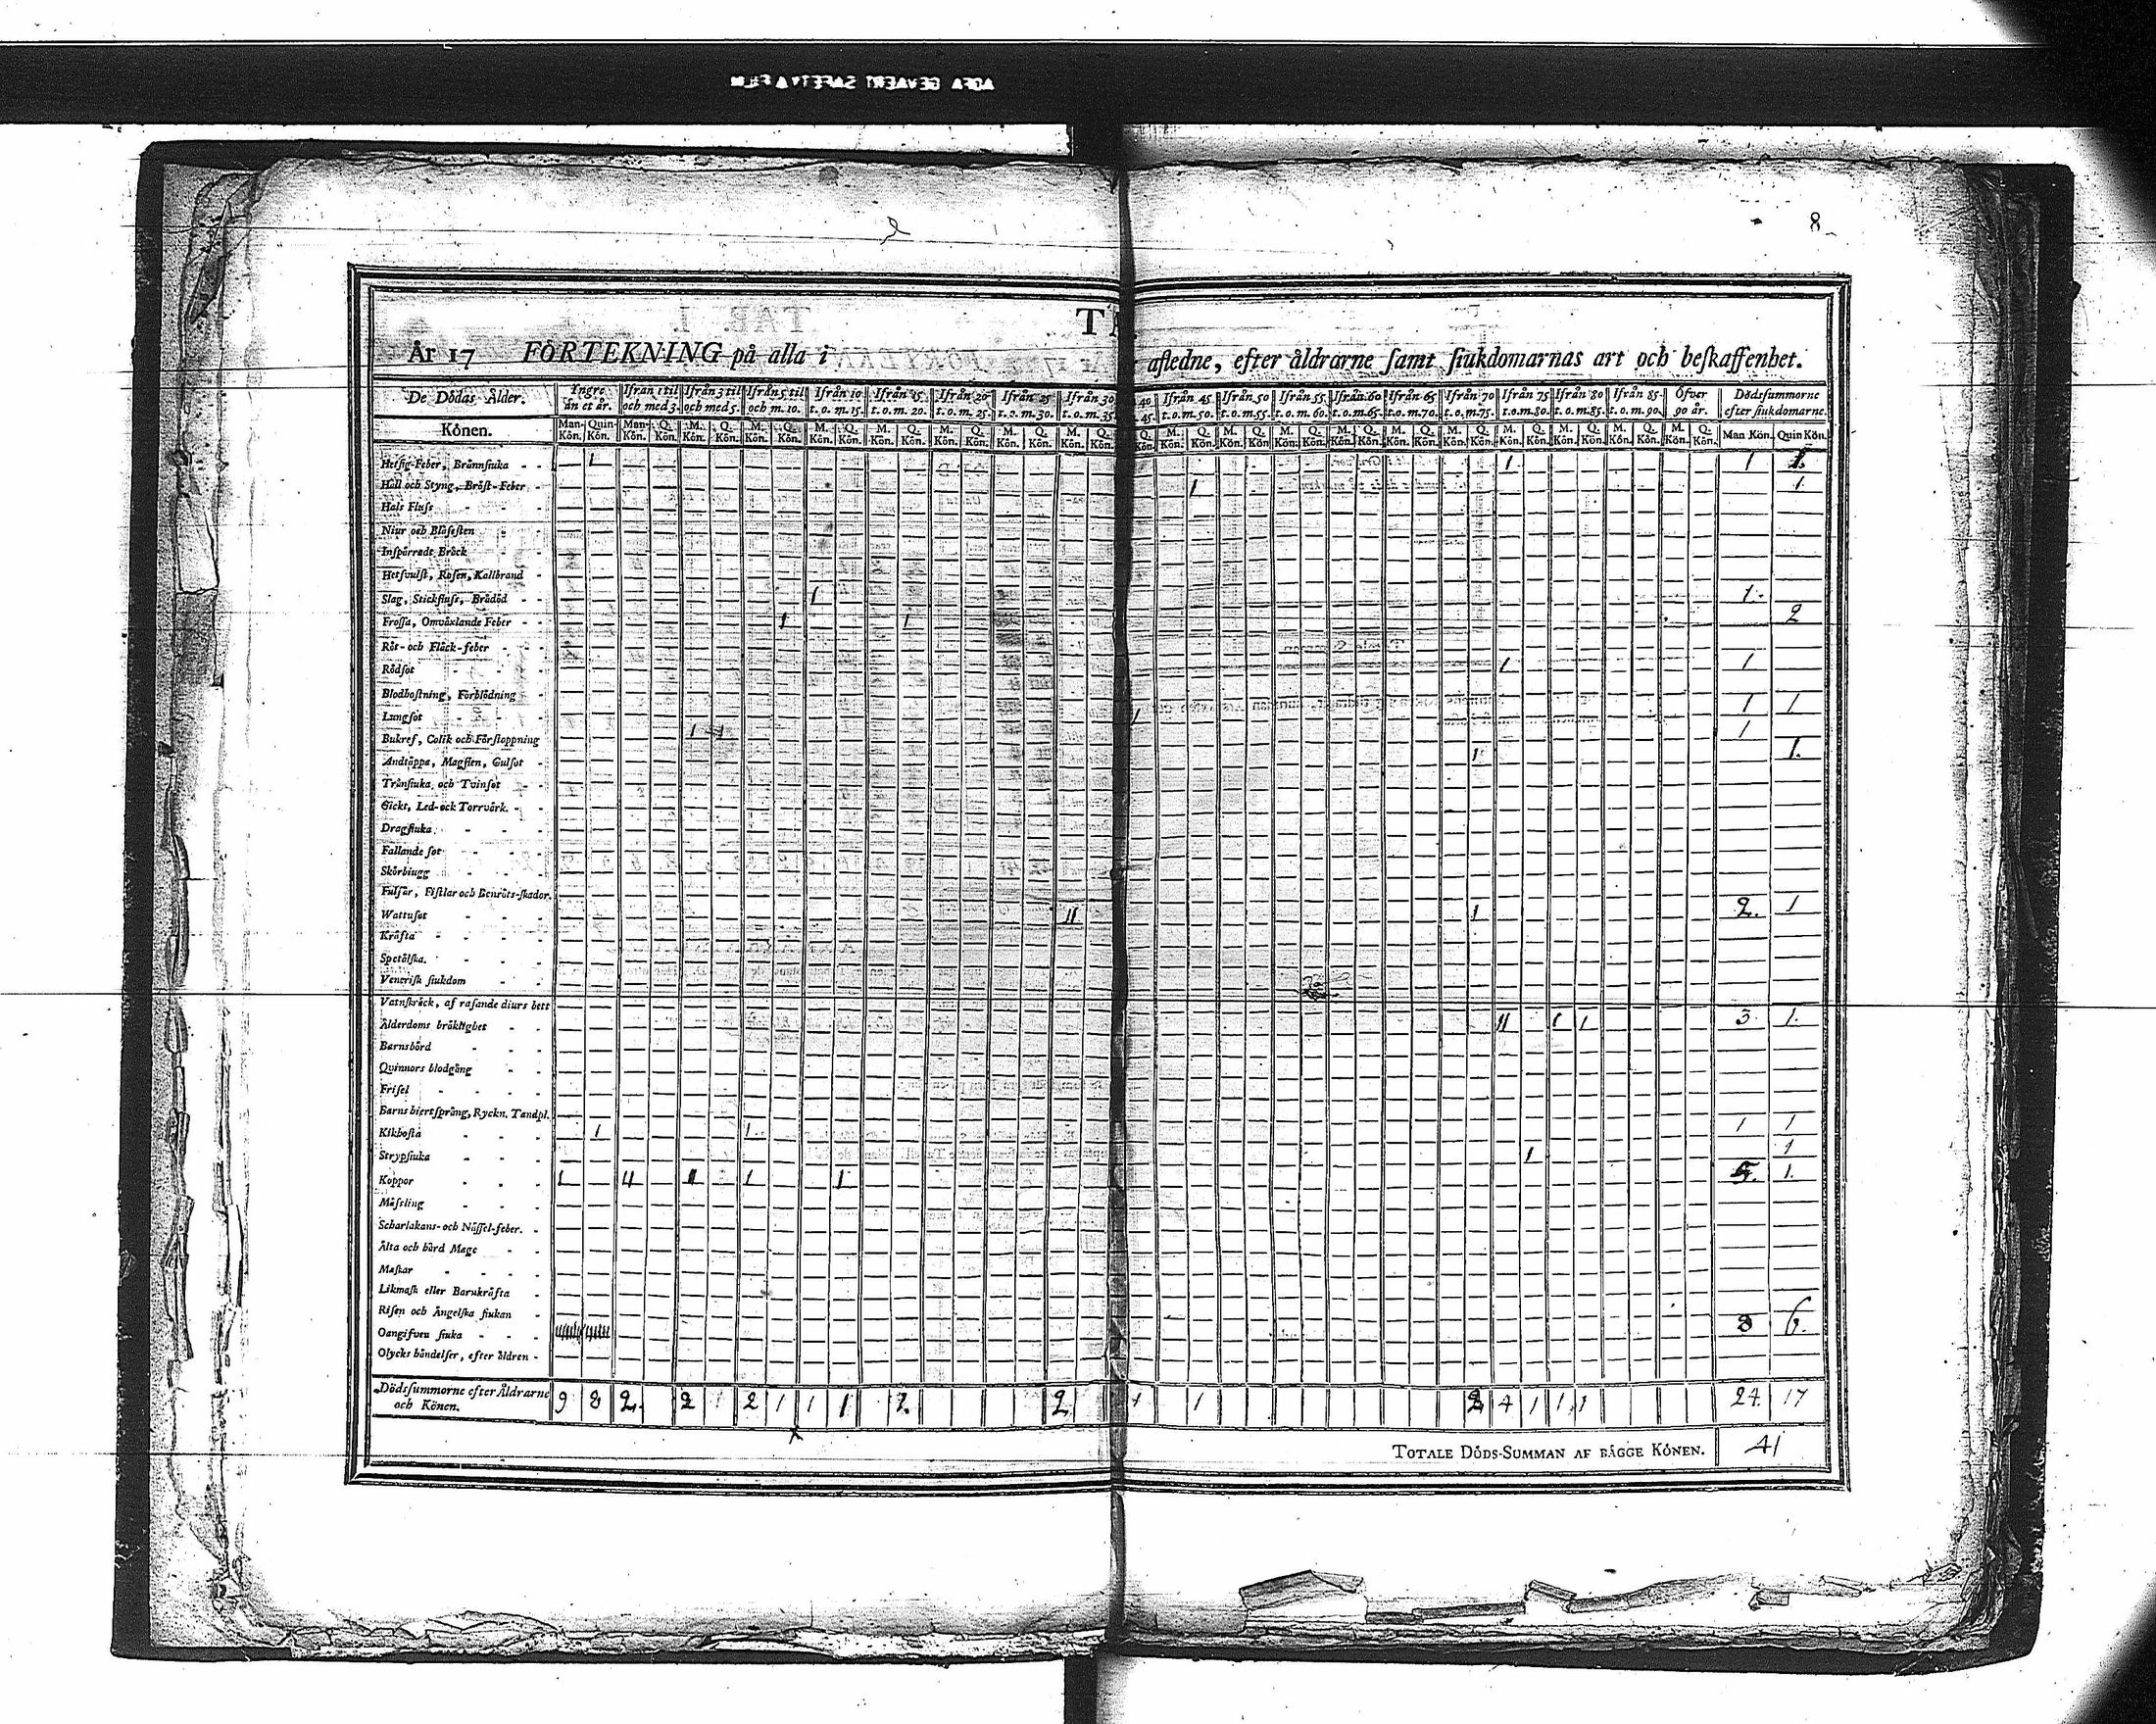 8
TA
År 17 FÖRTEKNING på alla i afledne, efter åldrarne samt siukdomarnas art och beskaffenhet.
De Dödas Ålder. Ingre än et år. Ifrån 1 til och med 3. Ifrån 3 til och med 5. Ifrån 5 til och m. 10. Ifrån 10 t. o. m. 15. Ifrån 15 t. o. m. 20. Ifrån 20 t. o. m. 25. Ifrån 25 t. o. m. 30. Ifrån 30 t. o. m. 35. 40 45. Ifrån 45 t. o. m. 50. Ifrån 50 t. o. m. 55. Ifrån 55 t. o. m. 60. Ifrån 60 t. o. m. 65. Ifrån 65 t. o. m. 70. Ifrån 70 t. o. m. 75. Ifrån 75 t. o. m. 80. Ifrån 80 t. o. m. 85. Ifrån 85 t. o. m. 90. Öfver 90 år. Dödssummorne efter siukdomarne.
Könen. Man Kön. Quin Kön. Man Kön. Q. Kön. M. Kön. Q. Kön. M. Kön. Q. Kön. M. Kön. Q. Kön. M. Kön. Q. Kön. M. Kön. Q. Kön. M. Kön. Q. Kön. M. Kön. Q. Kön. Q. Kön. M. Kön. Q. Kön. M. Kön. Q. Kön. M. Kön. Q. Kön. M. Kön. Q. Kön. M. Kön. Q. Kön. M. Kön. Q. Kön. M. Kön. Q. Kön. M. Kön. Q. Kön. M. Kön. Q. Kön. M. Kön. Q. Kön. Man Kön. Quin Kön.
Hetsig-Feber, Brännsiuka 1 1 1 1.
Håll och Styng, Bröst-Feber 1 1.
Hals Fluss
Niur och Blåsesten
Inspärradt Bråck
Hetsvulst, Rosen, Kallbrand
Slag, Stickfluss, Brådöd 1 1.
Frossa, Omväxlande Feber 1 1 2
Röt- och Fläck-feber
Rödsot 1 1
Blodhostning, Förblödning
Lungsot 1 1 1
Bukref, Colik och Förstoppning 1 1
Andtäppa, Magsten, Gulsot 1 1.
Trånsiuka och Tvinsot
Gickt, Led- ock Torrvärk.
Dragsiuka
Fallande sot
Skörbiugg
Fulsår, Fistlar och Benröts-skador.
Wattusot 11 1 2. 1
Kräfta
Spetälska.
Venerisk siukdom
Vatnskräck, af rasande diurs bett
Ålderdoms bräklighet 11 1 1 3. 1.
Barnsbörd
Quinnors blodgång
Frisel
Barns hiertsprång, Ryckn. Tandpl.
Kikhosta 1 1. 1 1
Strypsiuka 1 1
Koppor 1 11 11 1 1 1.
Mässling
Scharlakans- och Nässel-feber.
Älta och hård Mage
Maskar
Likmask eller Barnkräfta
Risen och Ängelska siukan
Oangifven siuka 8 6.
Olycks händelser, efter åldren
Dödssummorne efter Åldrarne och Könen. 9 8 2. 2 2 1 1 1 1. 2 1 1 2 4 1 1. 1 24. 17
TOTALE DÖDS-SUMMAN AF BÄGGE KÖNEN. 41